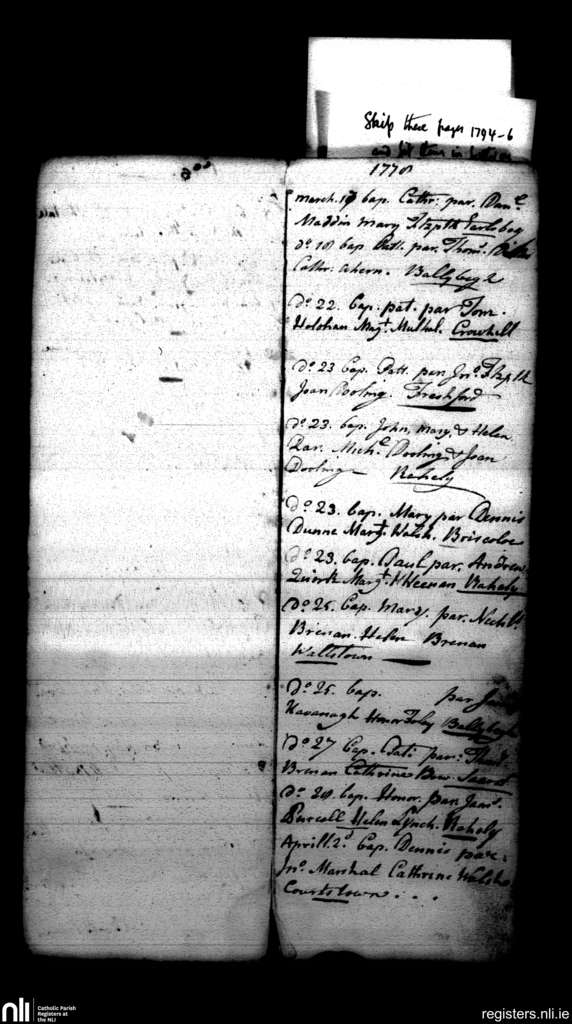 Skip these pages 1794-6
1778
march. 17 bap. Cathr: par. Danl.
Maddin mary Fitzptk Earlsbog
Do. 18 bap Patt. par. Thoms.
Cathr: ahern. Ballybegg
Do. 22. bap: pat. par Tom.
Holohan Magt. Mulhal. Crowhill
Do. 23 bap. Patt. par Jno. Fitzptk
Joan Dooling. Freshford
Do. 23. bap. John, mary, & Helen
Par. Michl. Dooling & Joan
Dooling Rahely
Do. 23. bap. Mary par Dennis
Dunne Margt. Walsh. Briscoloe
Do. 23. bap. Paul par. Andrew
Quirk Margt. Heenan Rahely
Do. 25. bap. Mary. par. Nichls.
Brenan Helen Brenan
Wallstown
Do. 25. bap. par
Kavanagh Honor Foley
Do. 27 bap. Patt: par:
Brenan Cathrine
Do. 28. bap. Honor. par. Jams.
Purcell Helen Lynch. Rahely
Aprill. 2d. bap. Dennis par:
Jno. Marshal Cathrine Walsh
Courtstown . . .
nli
Catholic Parish
Registers at
the NLI
registers.nli.ie